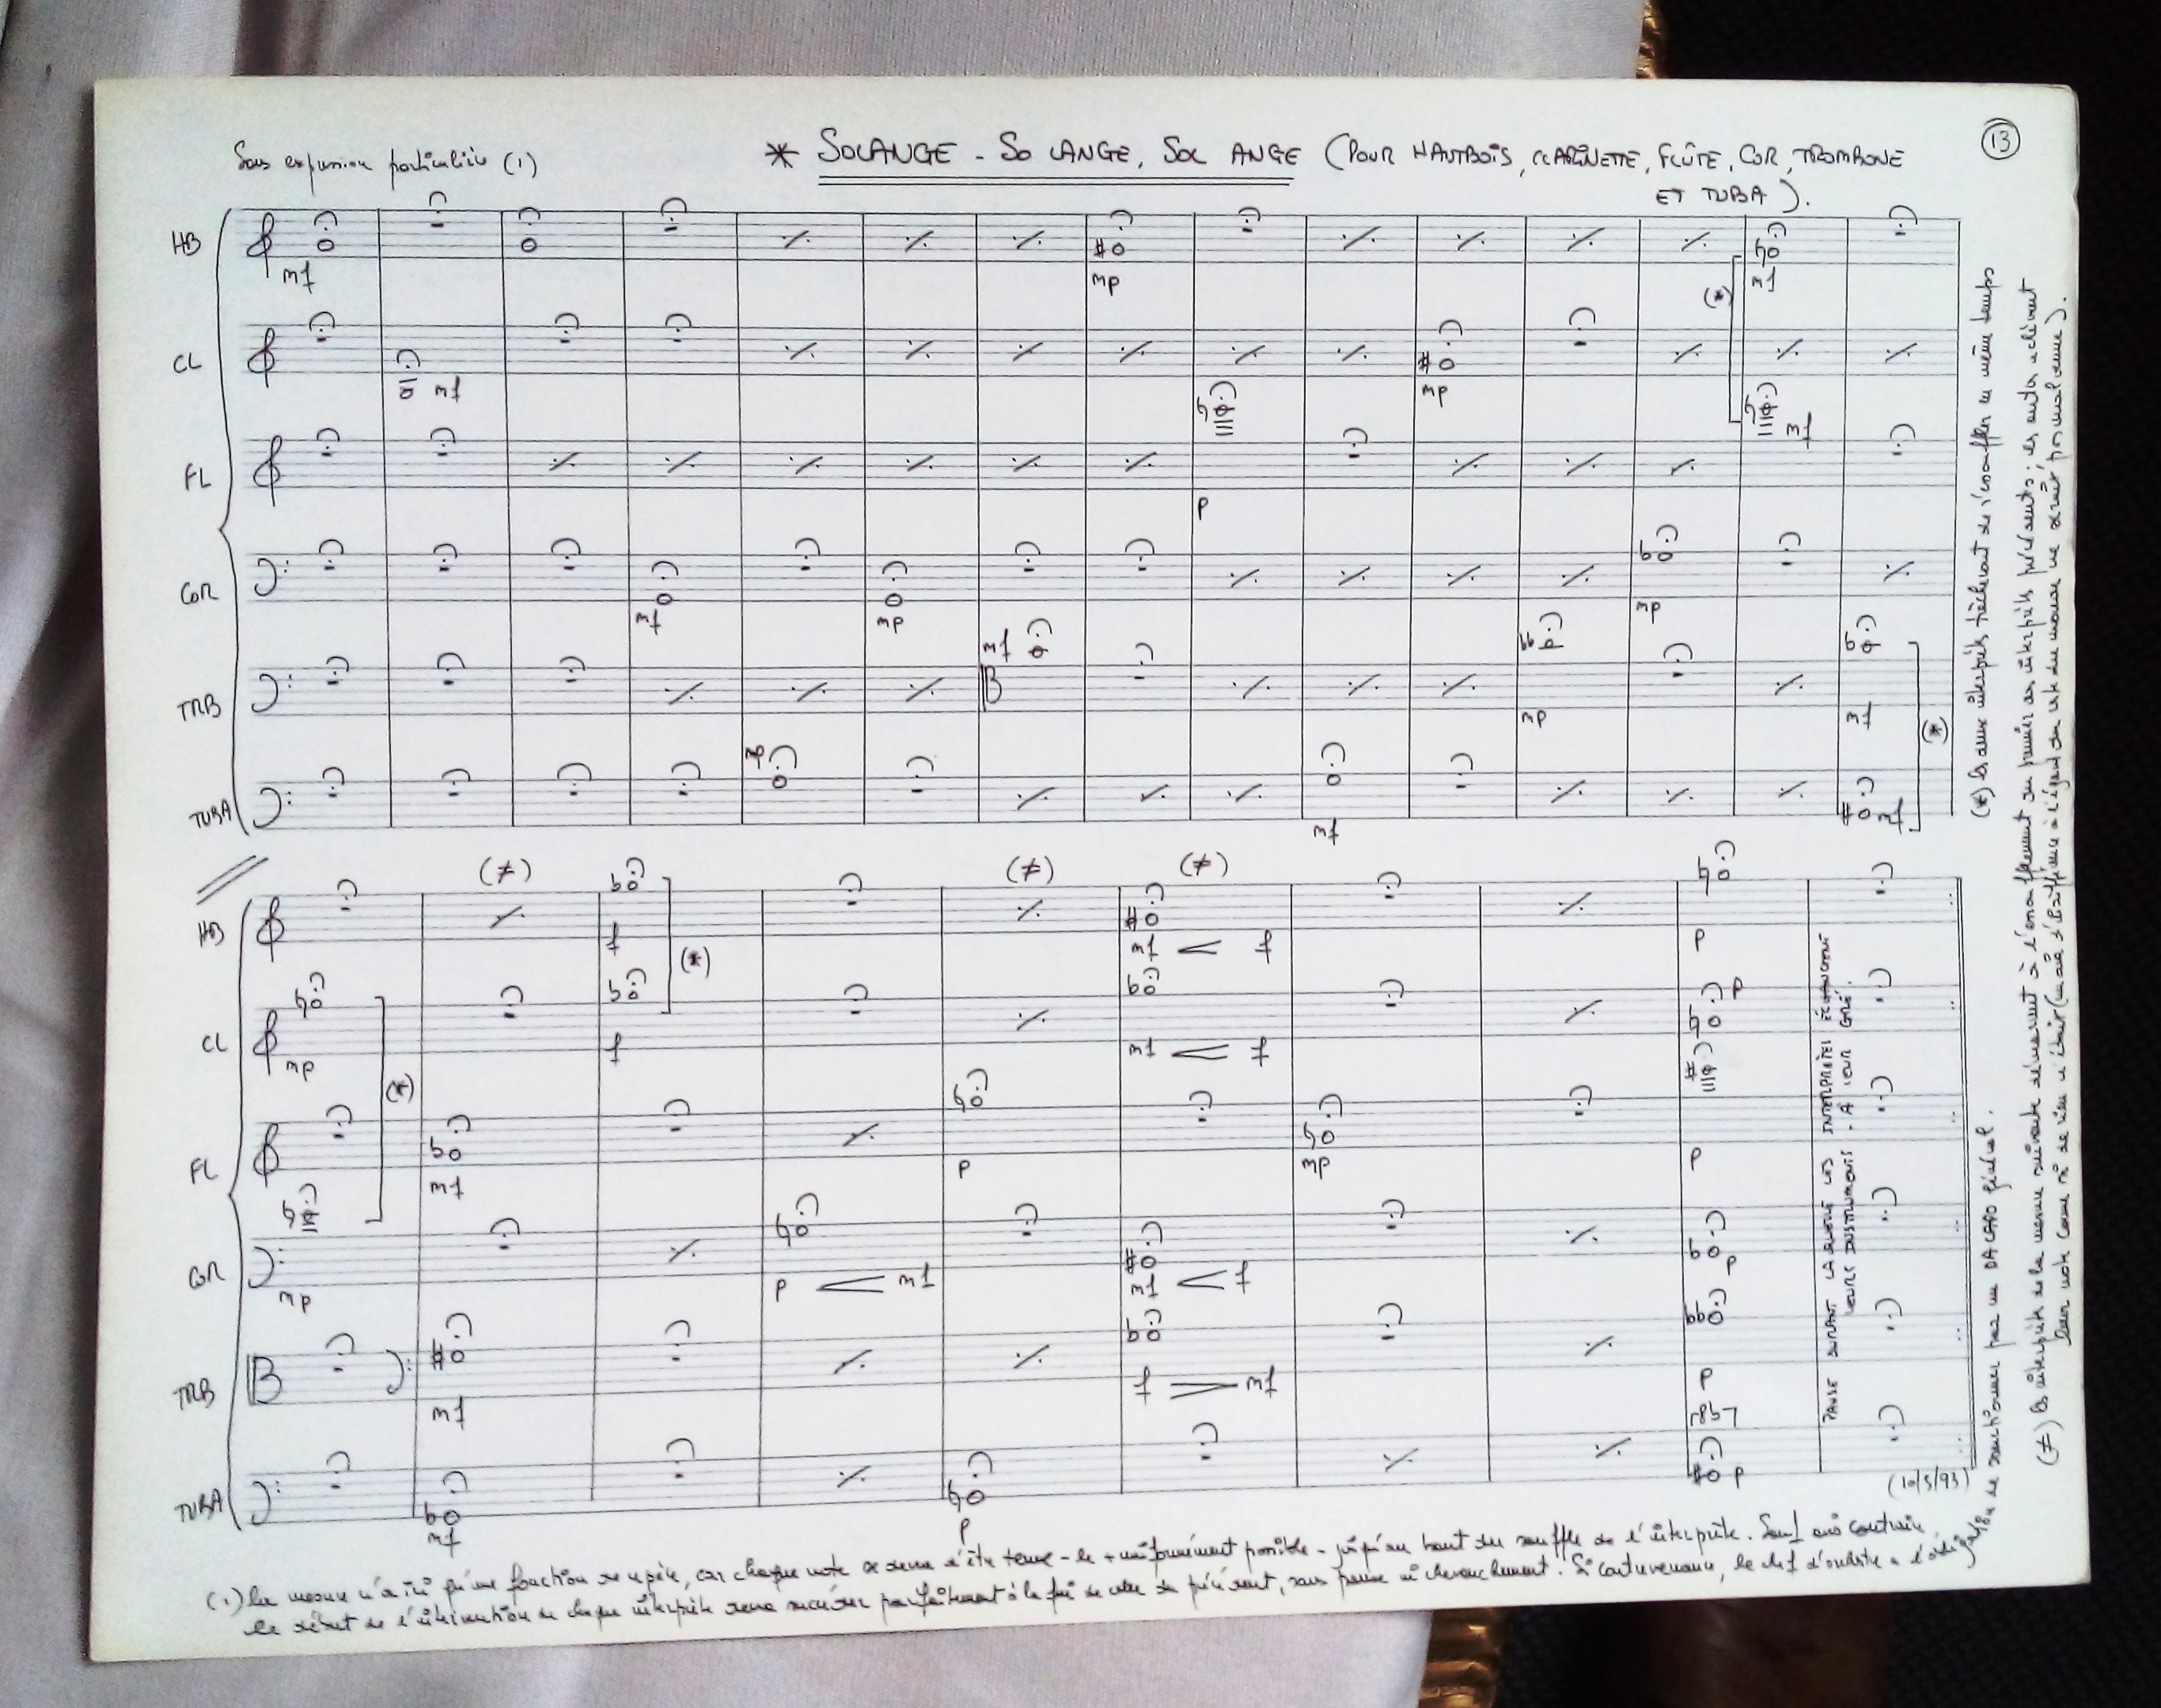 13
Sans expression particulière (1)
* SOLANGE - SO LANGE, SOL ANGE (POUR HAUTBOIS, CLARINETTE, FLÛTE, COR, TROMBONE
ET TUBA).
HB
mf
mp
mf
CL
mf
mp
(*)
FL
p
mf
COR
mf
mp
mp
TRB
mf
mp
mf
TUBA
mp
mf
mf
(*)
(≠)
(≠)
(≠)
HB
f
mf < f
p
(*)
CL
mp
f
mf < f
p
(*)
FL
mf
p
mp
p
COR
mp
p < mf
mf < f
p
TRB
mf
f > mf
p
TUBA
mf
p
p
PAUSE DURANT LAQUELLE LES INTERPRÈTES ÉCHANGENT
LEURS INSTRUMENTS À LEUR GRÉ.
(10/5/93)
(1) La mesure n'a ici qu'une fonction de repère, car chaque note devra être tenue - le + uniformément possible - jusqu'au bout du souffle de l'interprète. Sauf avis contraire,
le début de l'intervention de chaque interprète devra succéder parfaitement à la fin de celle du précédent, sans pause ni chevauchement. Si contrevenance, le chef d'orchestre a l'obligation
de sanctionner par un DA CAPO général.
(*) les deux interprètes tâcheront de s'essouffler en même temps
(≠) les interprètes de la mesure suivante démarrent à l'essoufflement du premier des interprètes présents; les autres achèvent
leur note comme si de rien n'était